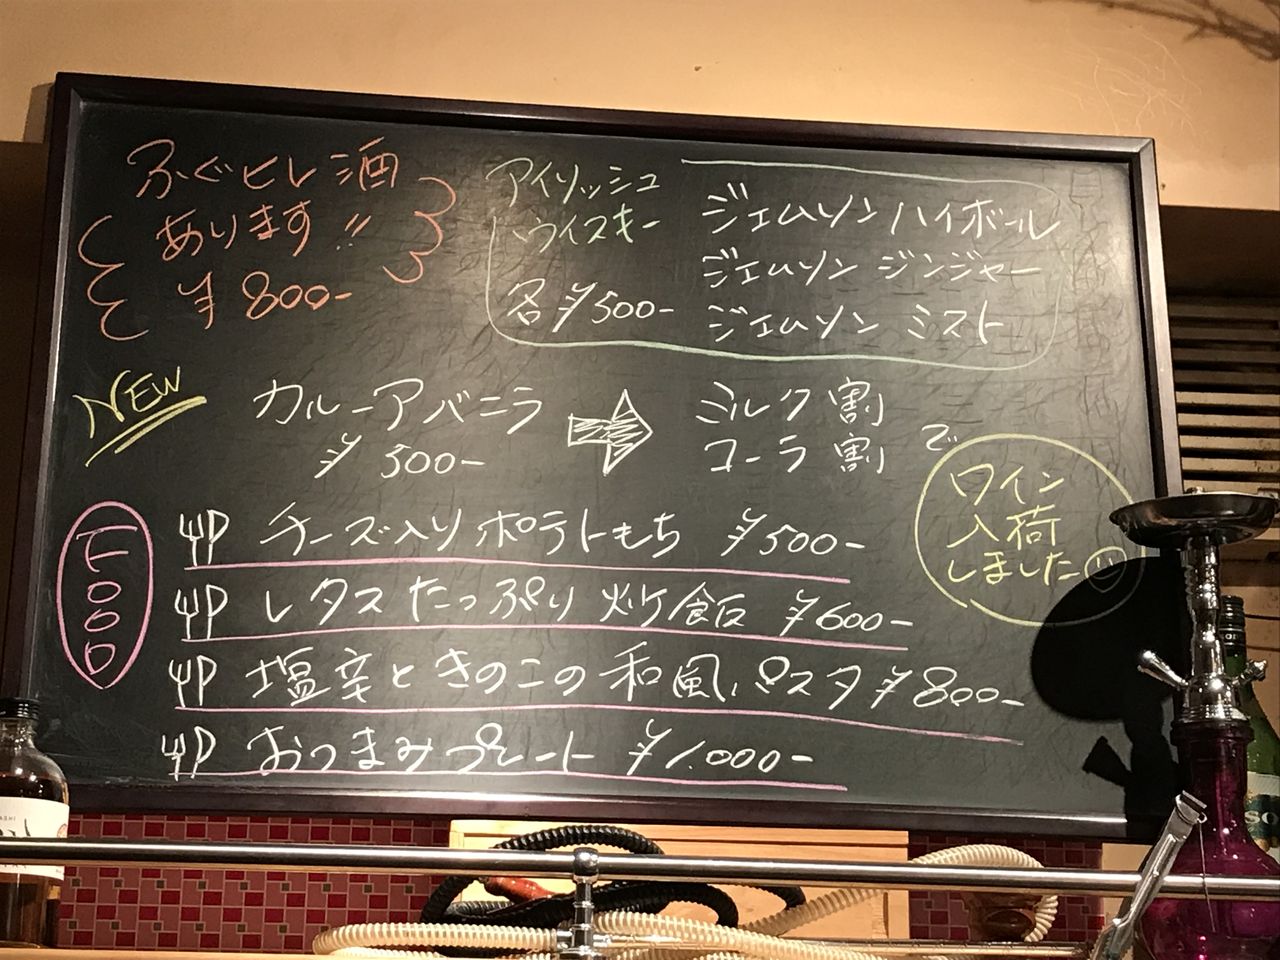 ふぐヒレ酒
あります!!
¥800-
アイリッシュ
ウイスキー
各¥500-
ジェムソンハイボール
ジェムソン ジンジャー
ジェムソン ミスト
NEW
カルーアバニラ
¥500-
ミルク割
コーラ割
で
ワイン
入荷
しました
FOOD
チーズ入りポテトもち ¥500-
レタスたっぷり炒飯 ¥600-
塩辛ときのこの和風パスタ ¥800-
おつまみプレート ¥1.000-